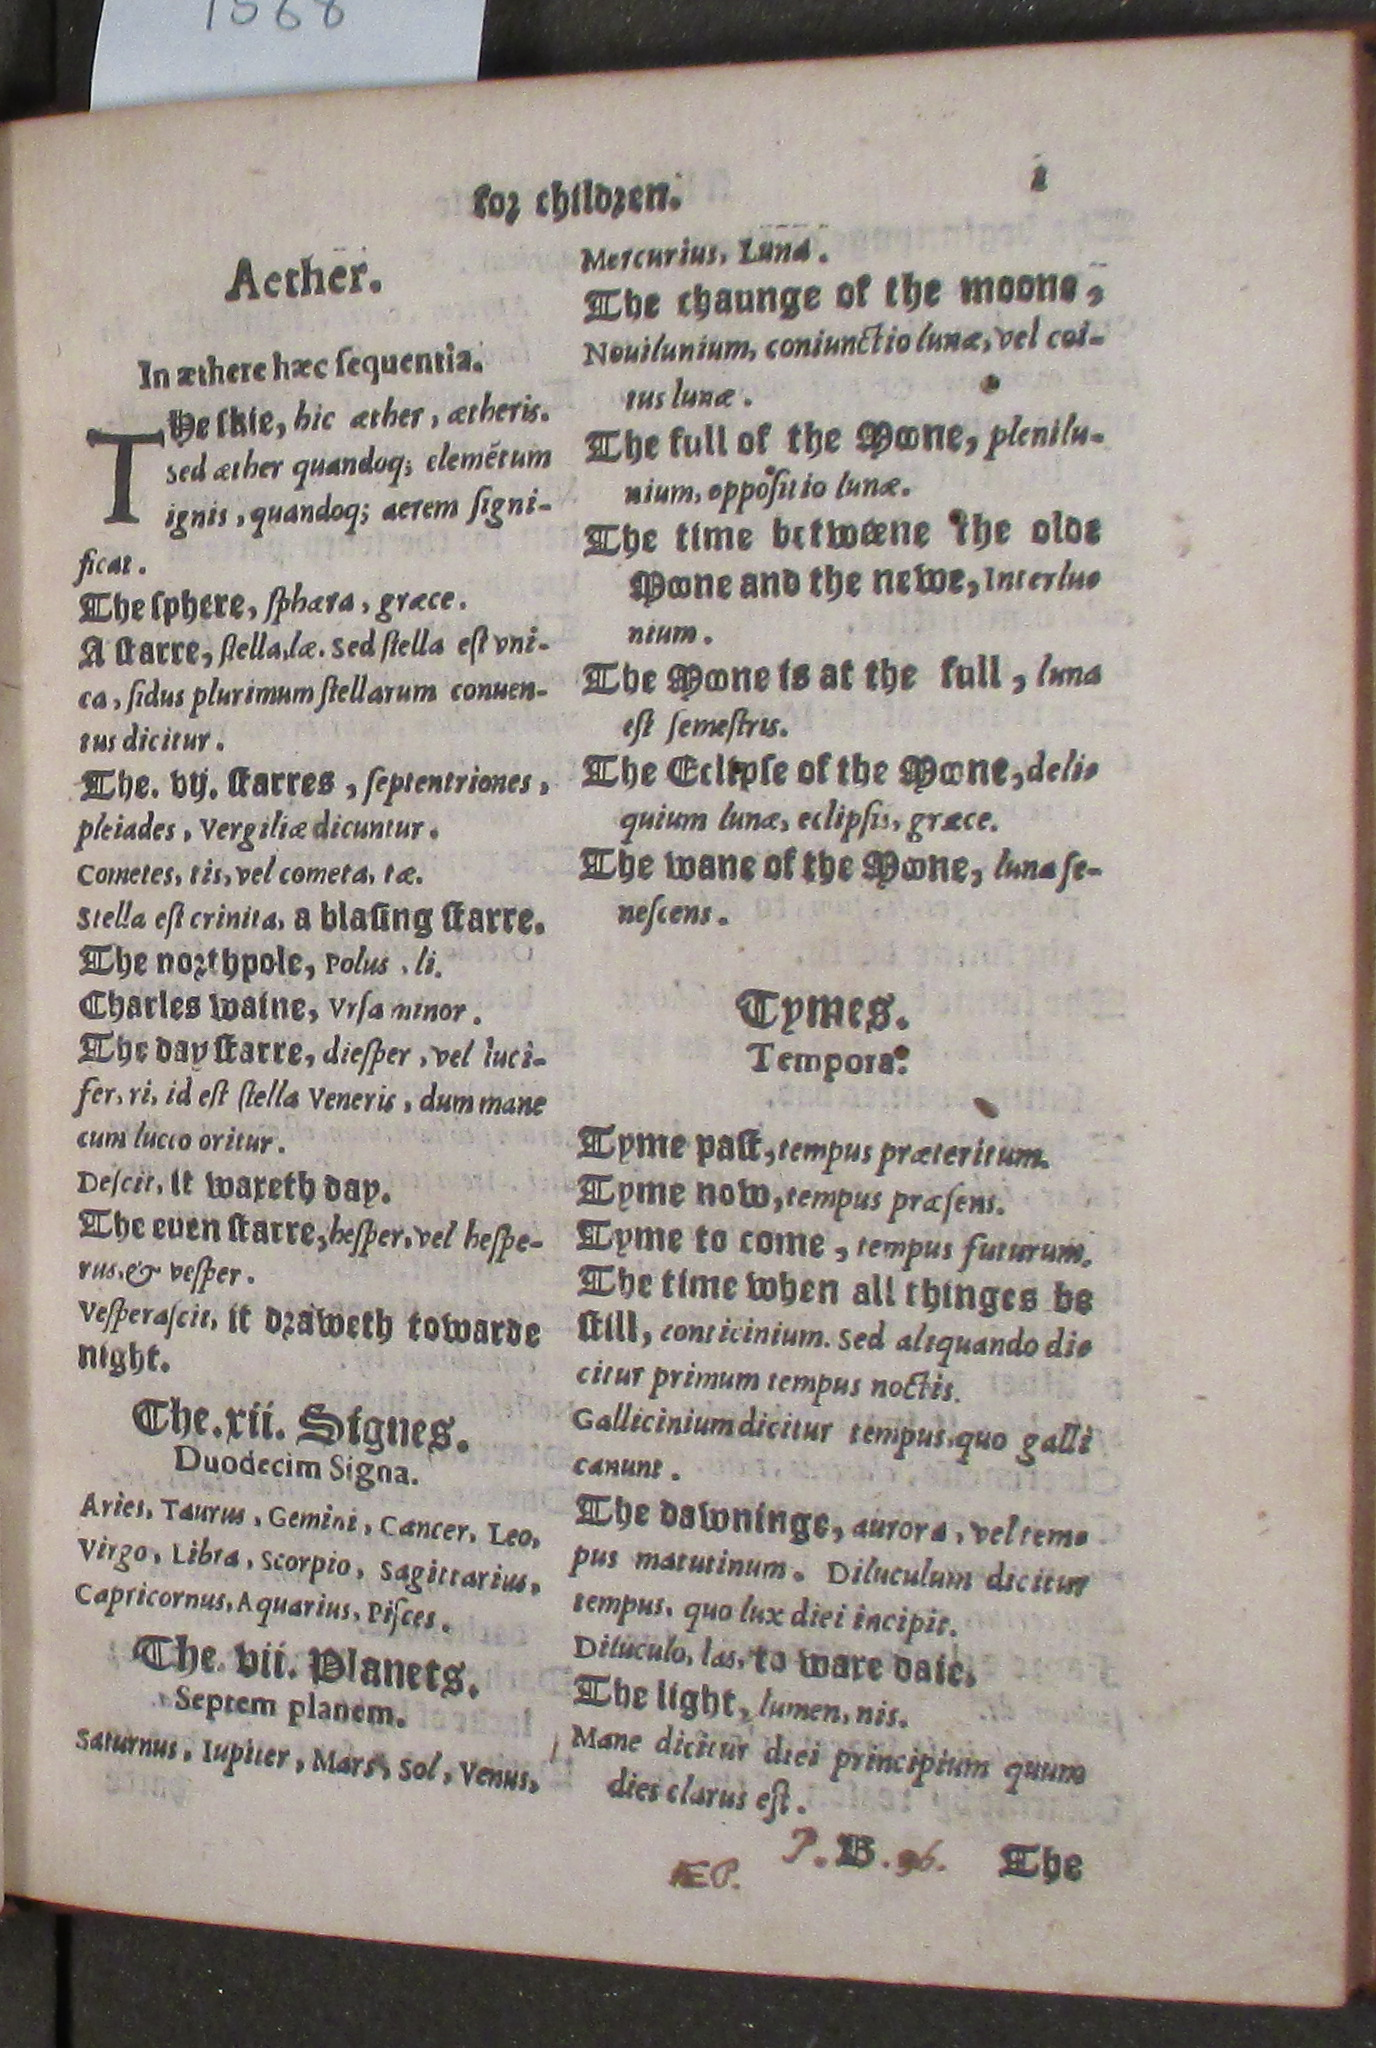 1568
for children.
1
Aether.
In æthere hæc ſequentia.
THe ſkie, hic æther, ætheris.
Sed æther quandoq; elemētum
ignis, quandoq; aerem ſigni-
ficat.
The ſphere, ſphæra, græce.
A ſtarre, ſtella, læ. Sed ſtella eſt vni-
ca, ſidus plurimum ſtellarum conuen-
tus dicitur.
The. vij. ſtarres, ſeptentriones,
pleiades, Vergiliæ dicuntur.
Cometes, tis, vel cometa, tæ.
Stella eſt crinita, a blaſing ſtarre.
The northpole, Polus, li.
Charles waine, Vrſa minor.
The day ſtarre, dieſper, vel luci-
fer, ri, id eſt ſtella Veneris, dum mane
cum lucco oritur.
Deſcit, it waxeth day.
The euen ſtarre, heſper, vel heſpe-
rus, & veſper.
Veſperaſcit, it draweth towarde
night.
The. xii. Signes.
Duodecim Signa.
Aries, Taurus, Gemini, Cancer, Leo,
Virgo, Libra, Scorpio, Sagittarius,
Capricornus, Aquarius, Piſces.
The. vii. Planets.
Septem planem.
Saturnus, Iupiter, Mars, Sol, Venus,
Mercurius, Luna.
The chaunge of the moone,
Nouilunium, coniunctio lunæ, vel coi-
tus lunæ.
The full of the Moone, plenilu-
nium, oppoſitio lunæ.
The time betweene the olde
Moone and the newe, Interlu-
nium.
The Moone is at the full, luna
eſt ſemeſtris.
The Eclipſe of the Moone, deli-
quium lunæ, eclipſis, græce.
The wane of the Moone, luna ſe-
neſcens.
Tymes.
Tempora.
Tyme paſt, tempus præteritum.
Tyme now, tempus præſens.
Tyme to come, tempus futurum.
The time when all thinges be
ſtill, conticinium. Sed aliquando di-
citur primum tempus noctis.
Gallicinium dicitur tempus, quo galli
canunt.
The dawninge, aurora, vel tem-
pus matutinum. Diluculum dicitur
tempus, quo lux diei incipit.
Diluculo, las, to waxe daie.
The light, lumen, nis.
Mane dicitur diei principium quum
dies clarus eſt.
P. B. 96. The
ÆP.